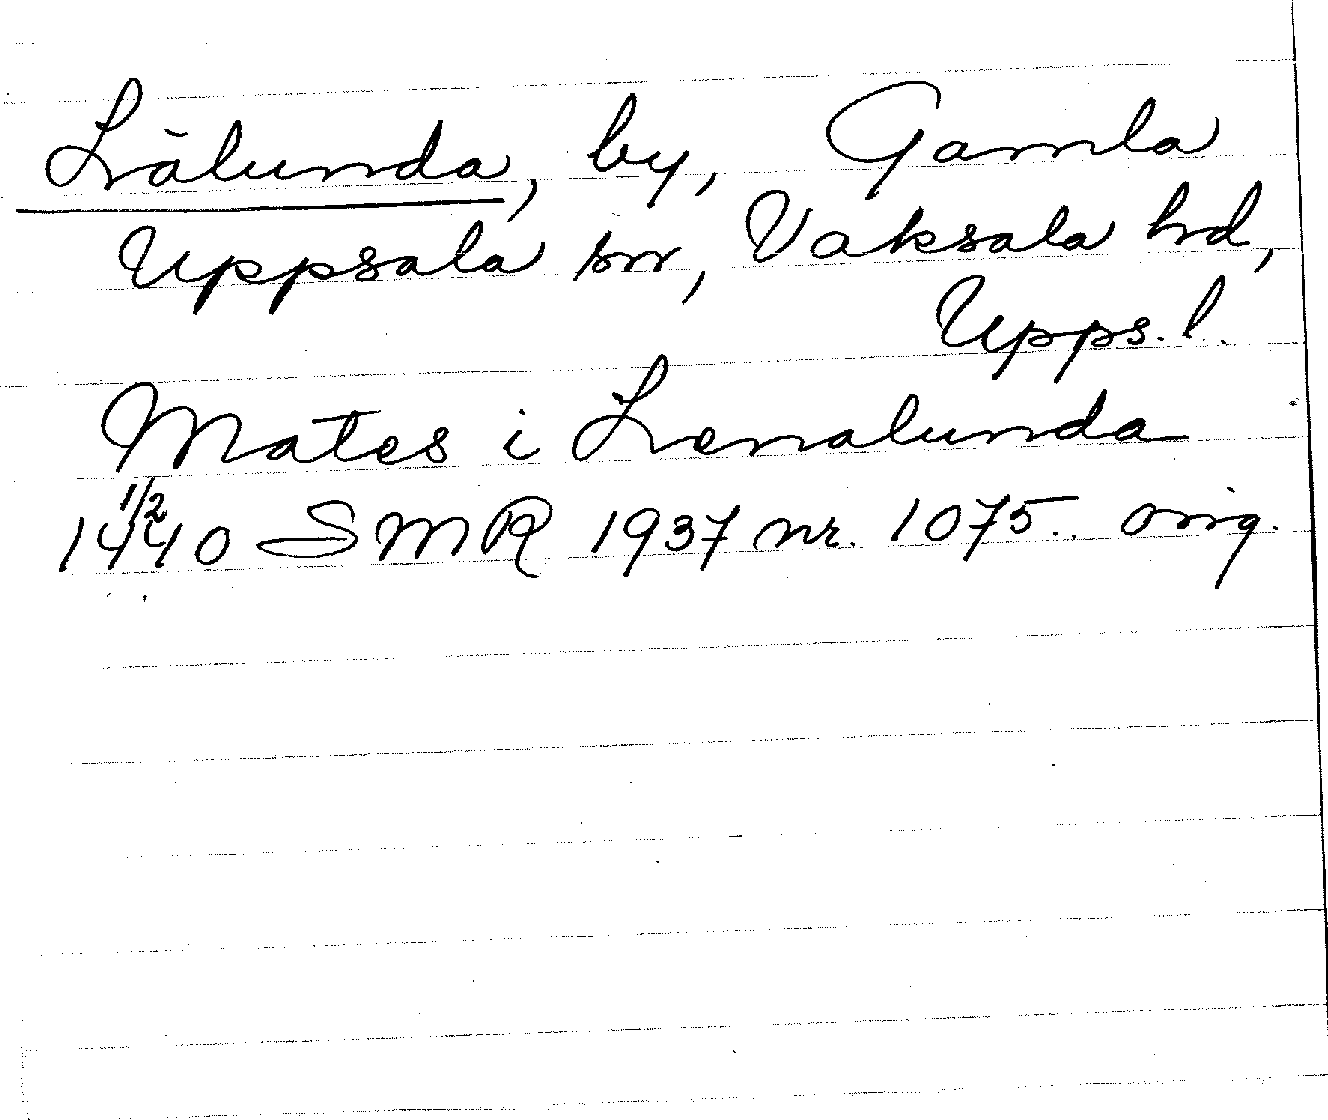 Lälunda, by, Gamla
Uppsala sn, Vaksala hd,
Upps. l.
Mates i Lenalunda
1/2
1440 SMR 1937 nr. 1075. orig.